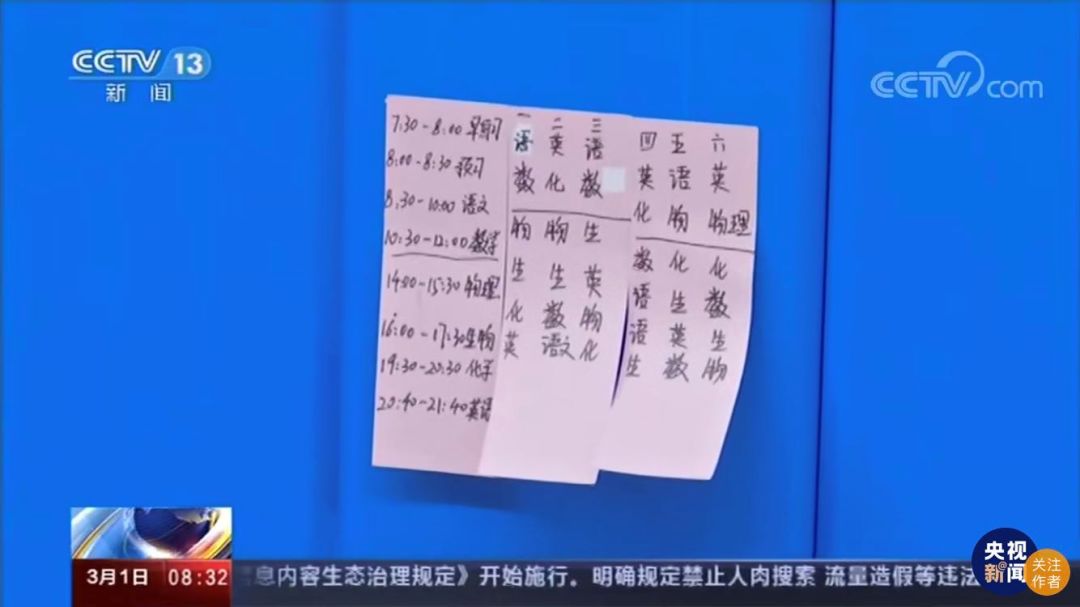 CCTV 13
新闻
CCTV.com
7:30-8:00 早自习
8:00-8:30 预习
8:30-10:00 语文
10:30-12:00 数学
14:00-15:30 物理
16:00-17:30 生物
19:30-20:30 化学
20:40-21:40 英语
一 二 三
语 英 语
数 化 数
物 物 生
生 生 英
化 数 物
英 语文 化
四 五 六
英 语 英
化 物 物理
数 化 化
语 生 数
语 英 生
生 数 物
3月1日 08:32
息内容生态治理规定》开始施行。明确规定禁止人肉搜索 流量造假等违法
央视
@新闻
关注
作者